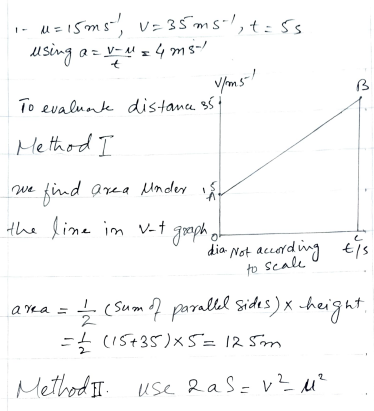 1- u = 15 ms⁻¹, v = 35 ms⁻¹, t = 5s
using a = (v-u)/t = 4 ms-¹
v/ms⁻¹
B
To evaluate distance 35
Method I
we find area under 15
A
the line in v-t graph O
C
dia Not according t/s
to scale
area = 1/2 (sum of parallel sides) x height.
= 1/2 (15+35) x 5 = 125m
Method II. use 2aS = v² - u²